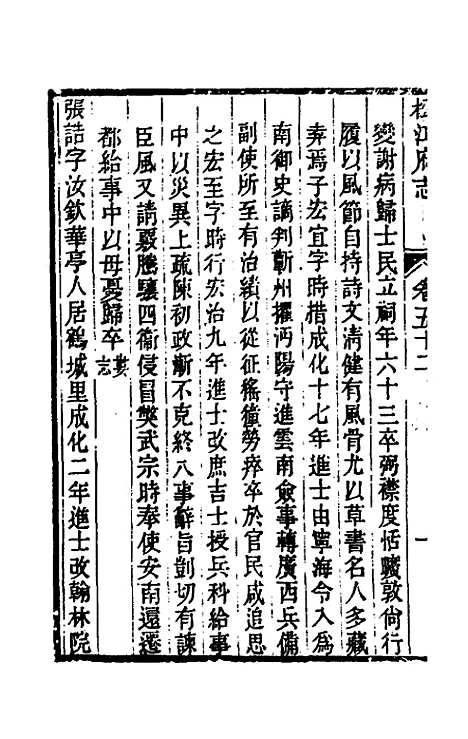 松江府志 卷五十二 一
變謝病歸士民立祠年六十三卒弼襟度恬曠敦尙行
履以風節自持詩文淸健有風骨尤以草書名人多藏
弆焉子宏宜字時措成化十七年進士由寧海令入爲
南御史謫判蘄州擢沔陽守進雲南僉事轉廣西兵備
副使所至有治績以從征徭獞勞瘁卒於官民咸追思
之宏至字時行宏治九年進士改庶吉士授兵科給事
中以災異上疏陳初政漸不克終八事辭旨剴切有諫
臣風又請覈騰驤四衞侵冒獘武宗時奉使安南還遷
都給事中以母憂歸卒婁志
張詰字汝欽華亭人居鶴城里成化二年進士改翰林院